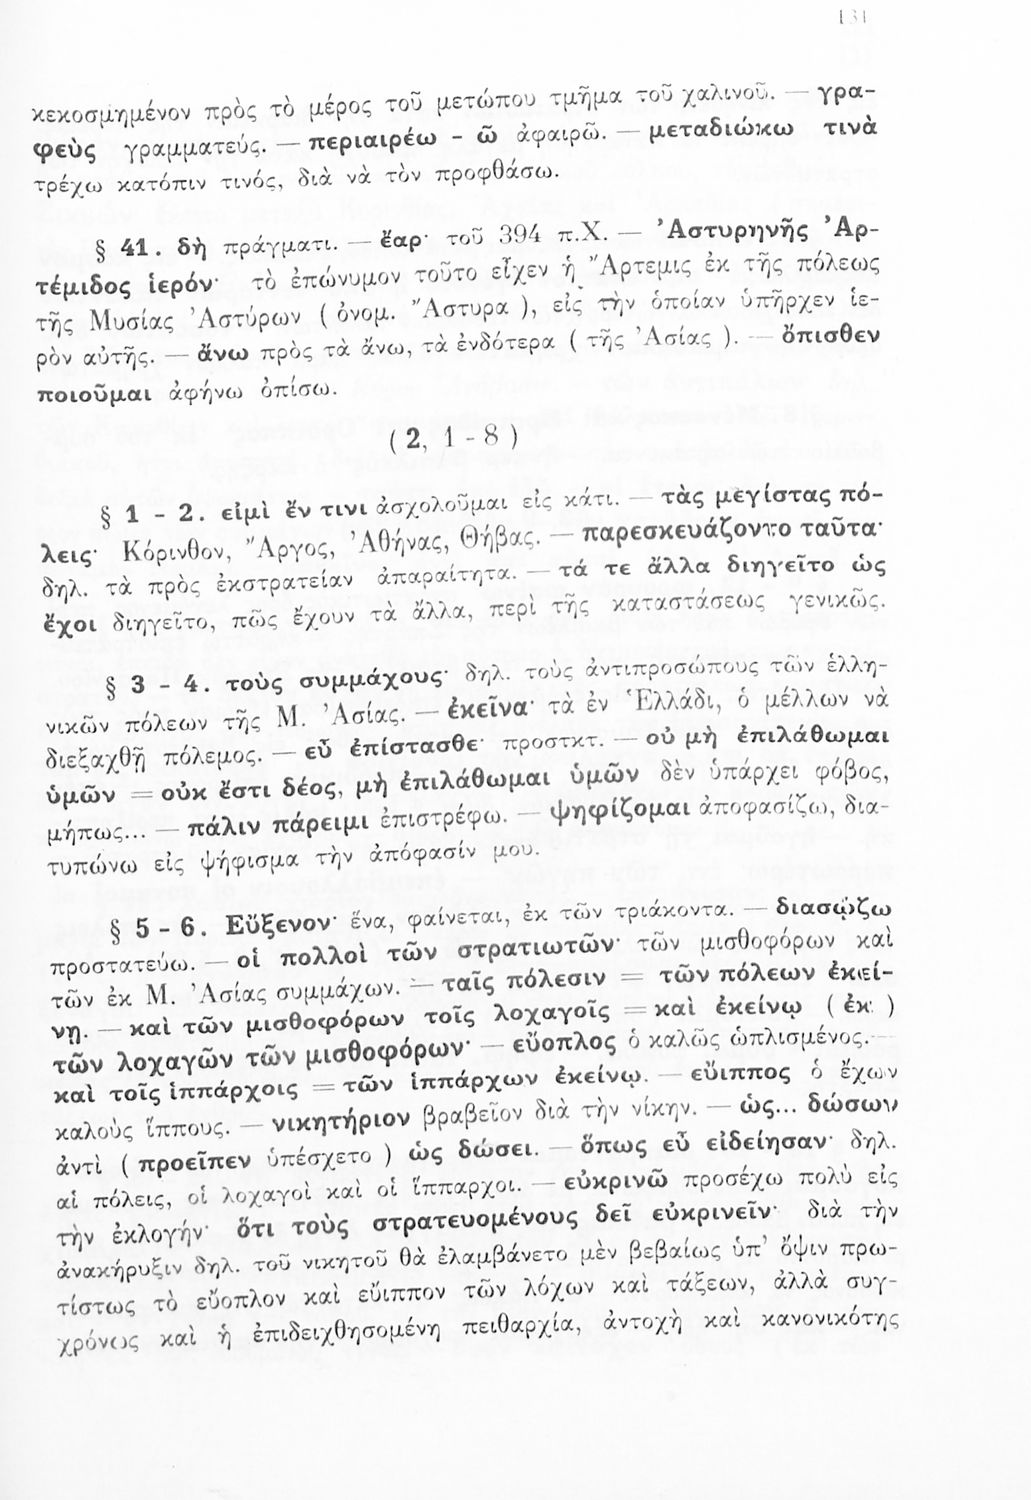 131
κεκοσμημένον πρὸς τὸ μέρος τοῦ μετώπου τμῆμα τοῦ χαλινοῦ. — γρα-
φεὺς γραμματεύς. — περιαιρέω - ῶ ἀφαιρῶ. — μεταδιώκω τινὰ
τρέχω κατόπιν τινός, διὰ νὰ τὸν προφθάσω.
§ 41. δὴ πράγματι. — ἔαρ· τοῦ 394 π.Χ. — Ἀστυρηνῆς Ἀρ-
τέμιδος ἱερόν· τὸ ἐπώνυμον τοῦτο εἶχεν ἡ Ἄρτεμις ἐκ τῆς πόλεως
τῆς Μυσίας Ἀστύρων ( ὀνομ. Ἄστυρα ), εἰς τὴν ὁποίαν ὑπῆρχεν ἱε-
ρὸν αὐτῆς. — ἄνω πρὸς τὰ ἄνω, τὰ ἐνδότερα ( τῆς Ἀσίας ). — ὄπισθεν
ποιοῦμαι ἀφήνω ὀπίσω.
( 2, 1 - 8 )
§ 1 - 2. εἰμὶ ἔν τινι ἀσχολοῦμαι εἰς κάτι. — τὰς μεγίστας πό-
λεις· Κόρινθον, Ἄργος, Ἀθήνας, Θήβας. — παρεσκευάζοντο ταῦτα·
δηλ. τὰ πρὸς ἐκστρατείαν ἀπαραίτητα. — τά τε ἄλλα διηγεῖτο ὡς
ἔχοι διηγεῖτο, πῶς ἔχουν τὰ ἄλλα, περὶ τῆς καταστάσεως γενικῶς.
§ 3 - 4. τοὺς συμμάχους· δηλ. τοὺς ἀντιπροσώπους τῶν ἑλλη-
νικῶν πόλεων τῆς Μ. Ἀσίας. — ἐκεῖνα· τὰ ἐν Ἑλλάδι, ὁ μέλλων νὰ
διεξαχθῇ πόλεμος. — εὖ ἐπίστασθε· προστκτ. — οὐ μὴ ἐπιλάθωμαι
ὑμῶν = οὐκ ἔστι δέος, μὴ ἐπιλάθωμαι ὑμῶν δὲν ὑπάρχει φόβος,
μήπως... — πάλιν πάρειμι ἐπιστρέφω. — ψηφίζομαι ἀποφασίζω, δια-
τυπώνω εἰς ψήφισμα τὴν ἀπόφασίν μου.
§ 5 - 6. Εὔξενον· ἕνα, φαίνεται, ἐκ τῶν τριάκοντα. — διασῴζω
προστατεύω. — οἱ πολλοὶ τῶν στρατιωτῶν· τῶν μισθοφόρων καὶ
τῶν ἐκ Μ. Ἀσίας συμμάχων. — ταῖς πόλεσιν = τῶν πόλεων ἐκεί-
νῃ. — καὶ τῶν μισθοφόρων τοῖς λοχαγοῖς = καὶ ἐκείνῳ ( ἐκ )
τῶν λοχαγῶν τῶν μισθοφόρων· — εὔοπλος ὁ καλῶς ὡπλισμένος. —
καὶ τοῖς ἱππάρχοις = τῶν ἱππάρχων ἐκείνῳ. — εὔιππος ὁ ἔχων
καλοὺς ἵππους. — νικητήριον βραβεῖον διὰ τὴν νίκην. — ὡς... δώσων
ἀντὶ ( προεῖπεν ὑπέσχετο ) ὡς δώσει. — ὅπως εὖ εἰδείησαν· δηλ.
αἱ πόλεις, οἱ λοχαγοὶ καὶ οἱ ἵππαρχοι. — εὐκρινῶ προσέχω πολὺ εἰς
τὴν ἐκλογήν· ὅτι τοὺς στρατευομένους δεῖ εὐκρινεῖν· διὰ τὴν
ἀνακήρυξιν δηλ. τοῦ νικητοῦ θὰ ἐλαμβάνετο μὲν βεβαίως ὑπ' ὄψιν πρω-
τίστως τὸ εὔοπλον καὶ εὔιππον τῶν λόχων καὶ τάξεων, ἀλλὰ συγ-
χρόνως καὶ ἡ ἐπιδειχθησομένη πειθαρχία, ἀντοχὴ καὶ κανονικότης